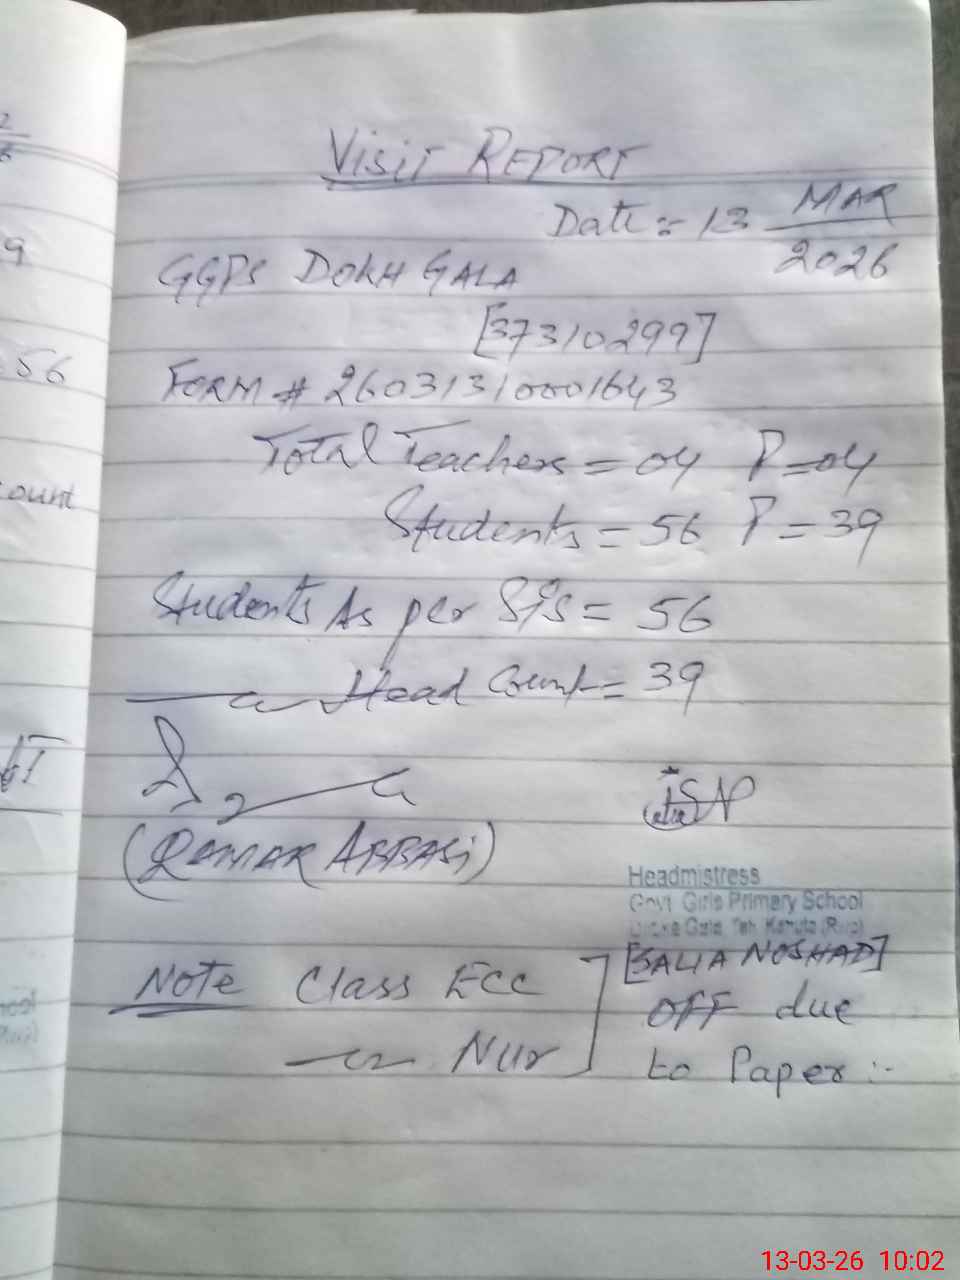 VISIT REPORT
Date :- 13 MAR
2026
GGPS DOKH GALA
[37310299]
FORM # 26031310001643
Total Teachers = 04 P = 04
Students = 56 P = 39
Students As per SIS = 56
Head Count = 39
(QAMAR ABBASI)
Headmistress
Govt Girls Primary School
Gala, Teh. Kahuta (Rwp)
[SALIA NOSHAD]
Note Class ECC
Nur
OFF due
to Paper :-
9
56
ount
13-03-26 10:02